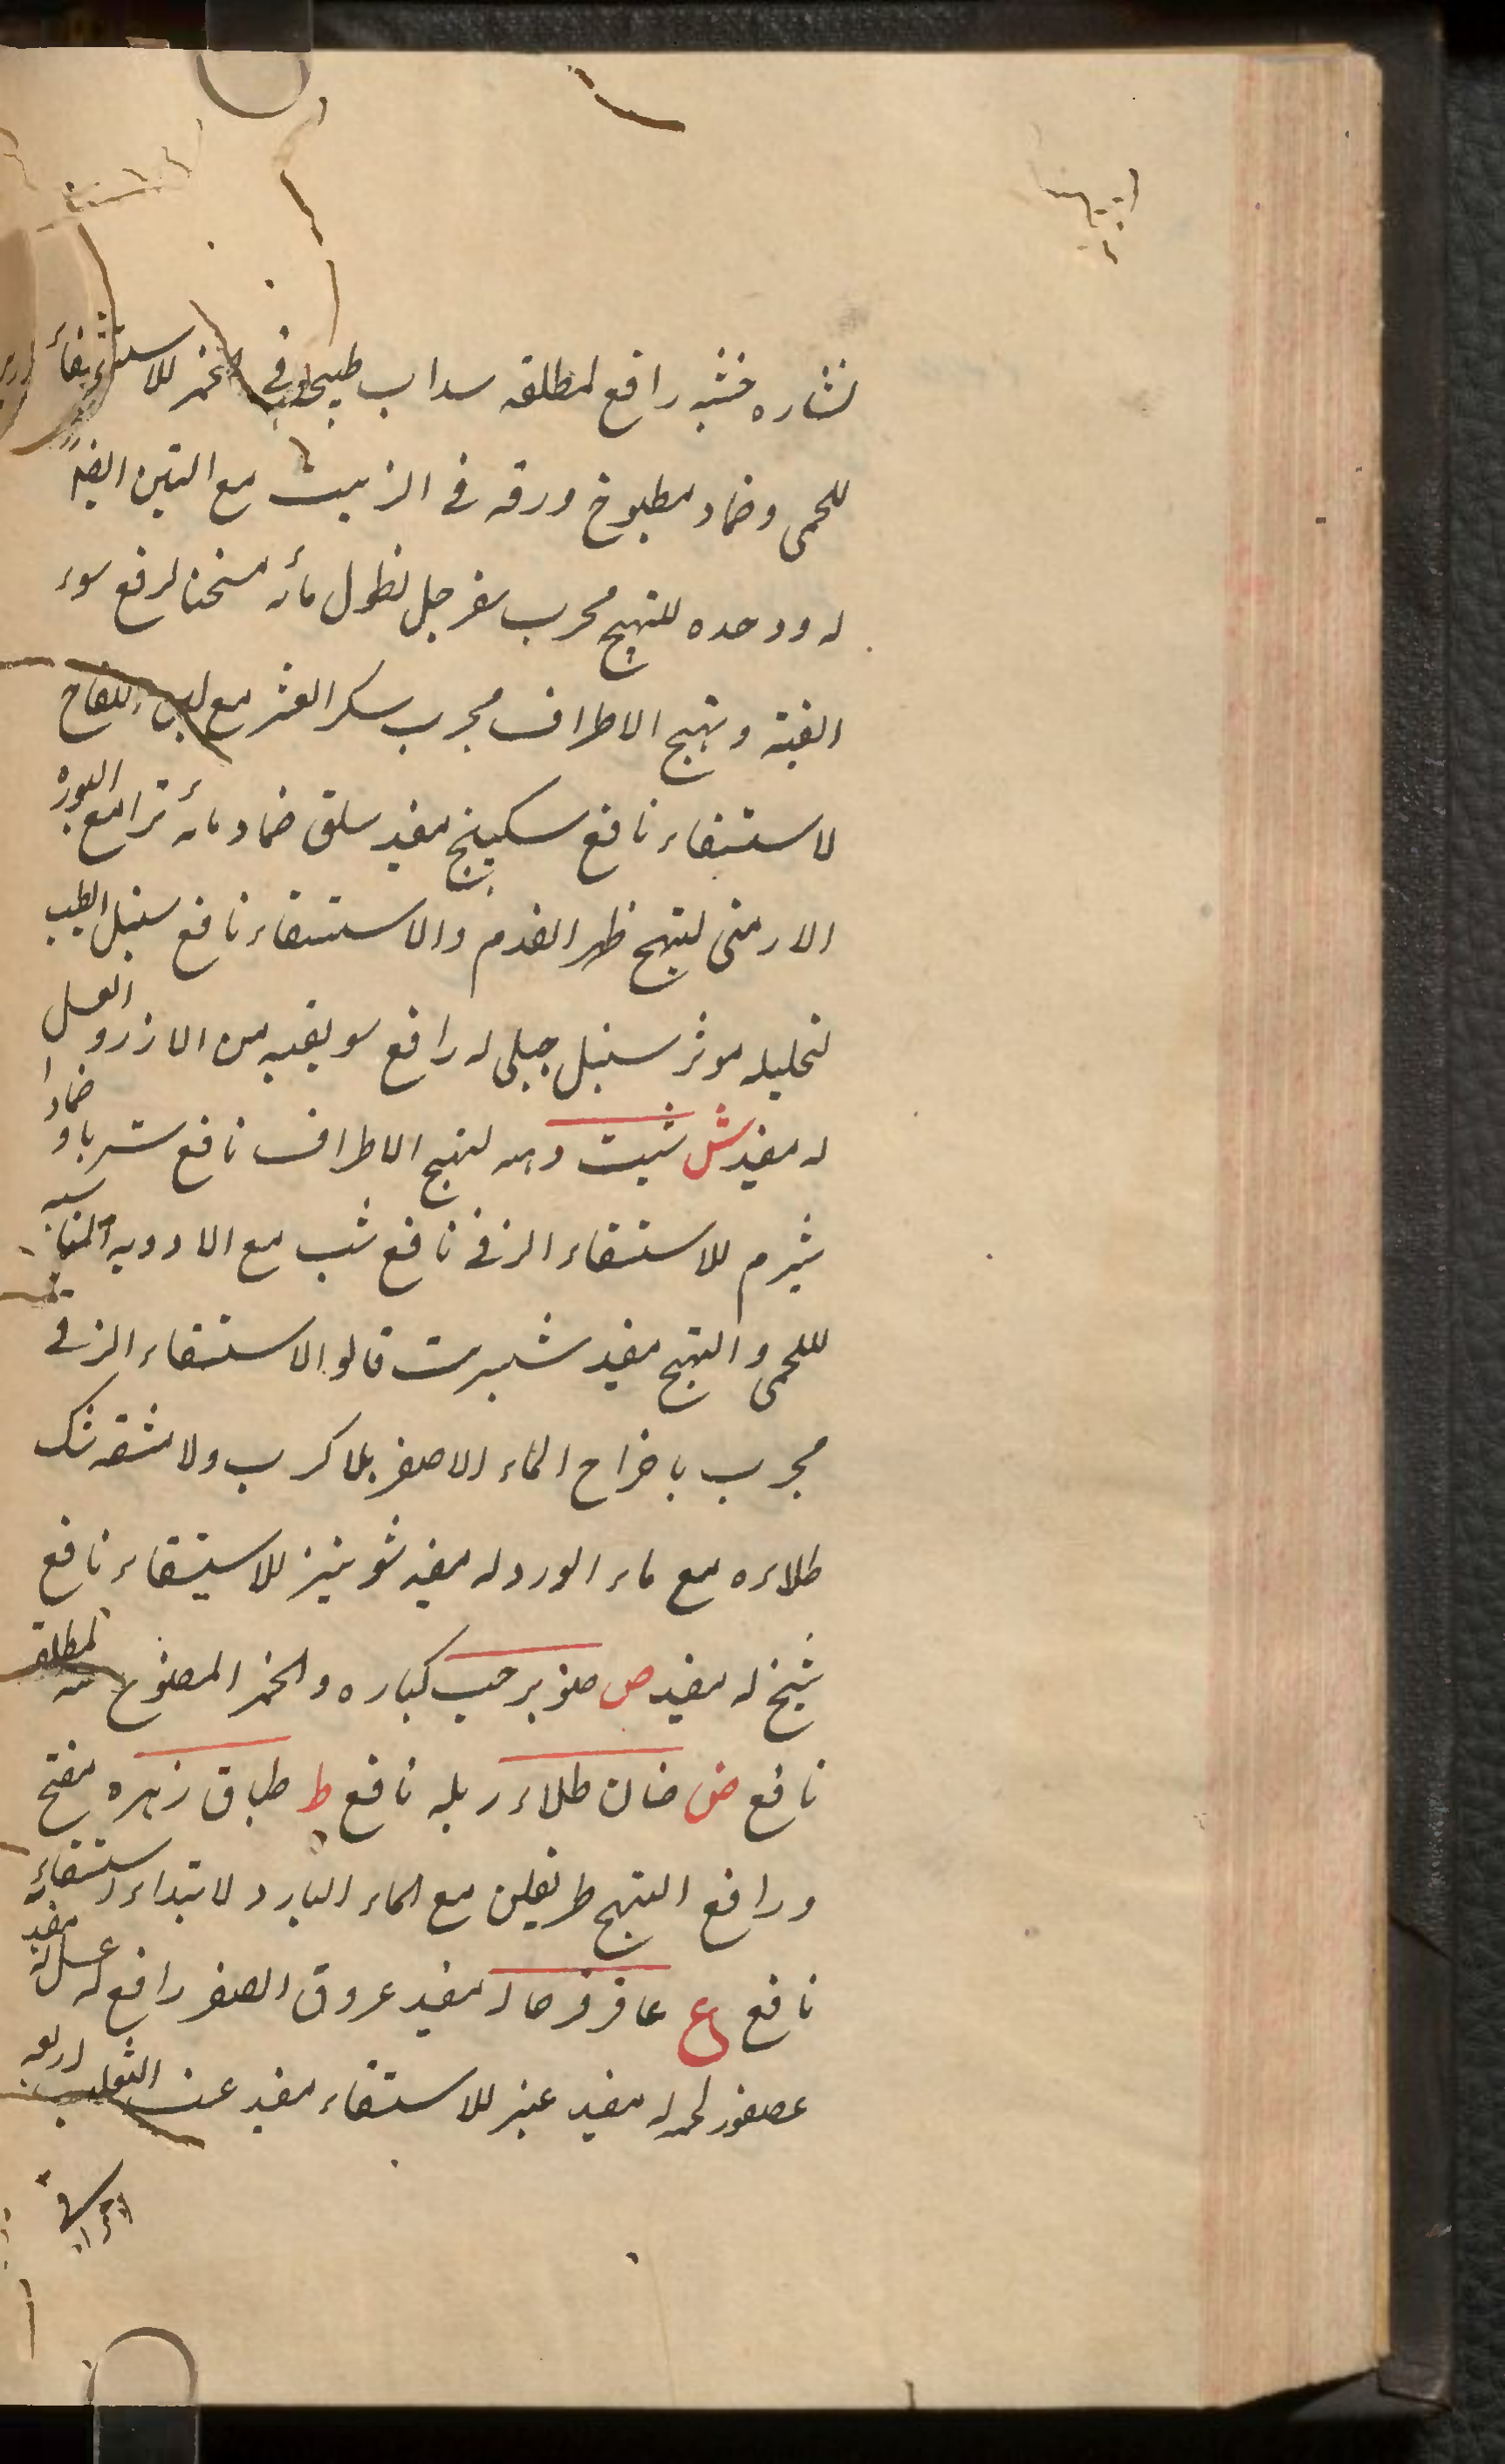 نشاره خشبه رافع لمطلقه سداب طبیخه فی الخمر للاستسقاء
للحمی وضماد مطبوخ ورقه فی الزیت مع التین ایضاً
له ووحده للتهیج مجرب سفرجل نطول مائه مسخنا لرفع سوء
القنیة وتهیج الاطراف مجرب سکر العشر مع لبن اللقاح
لاستسقاء نافع سکبینج مفید سلق ضماد مائه مع البورة
الارمنی لتهیج ظهر القدم والاستسقاء نافع سنبل الطیب
لتحلیله موثر سنبل جبلی له رافع سویقیه من الارز والعسل
له مفید ش شبت دهنه لتهیج الاطراف نافع شربا وضمادا
شبرم للاستسقاء الزقی نافع شب مع الادویه المناسبه
للحمی والتهیج مفید شبرت قالوا لاستسقاء الزقی
مجرب باخراج الماء الاصفر بلا کرب ولا مشقه شک
طلاءه مع ماء الورد له مفید شونیز للاستسقاء نافع
شیخ له مفید ص صنوبر حب کباره والخمر المصنوع منه لمطلقه
نافع ض ضان طلاء زبله نافع ط طباق زهره مفتح
ورافع التهیج طریفلن مع الماء البارد لابتداء استسقاء
نافع ع عاقرقرحا له مفید عروق الصفر رافع له عسل له مفید
عصفور لحمه له مفید عنبر للاستسقاء مفید عنب الثعلب